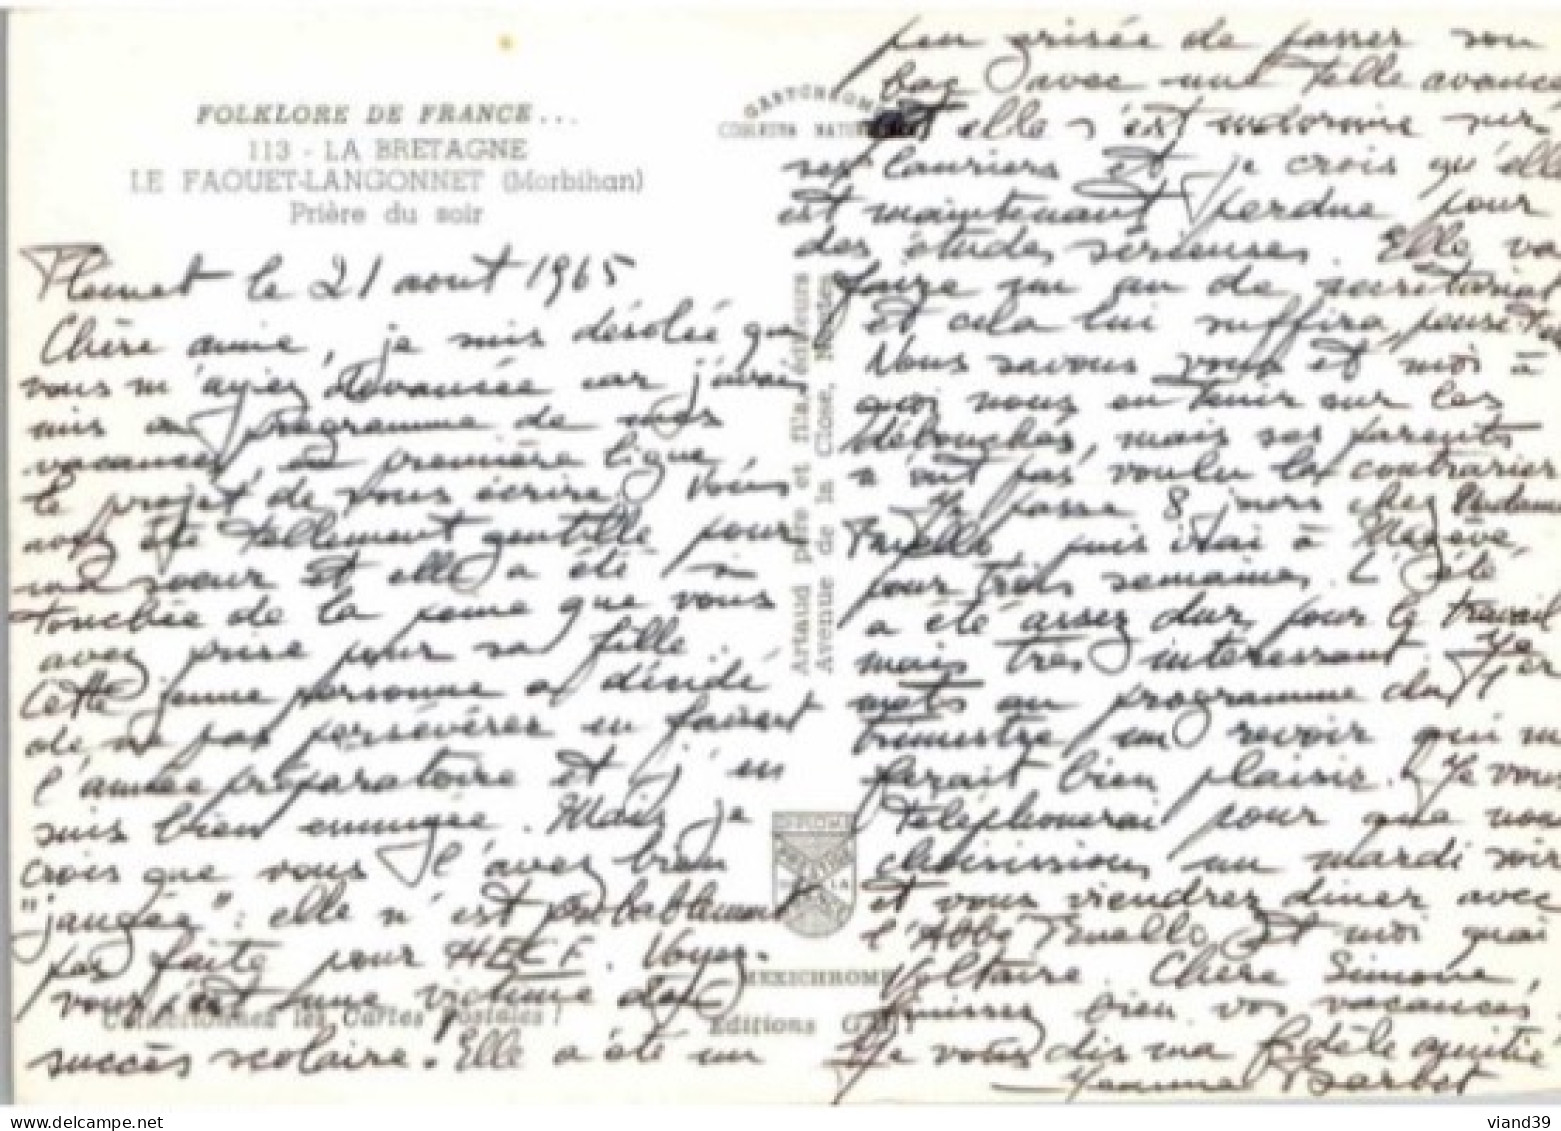 FOLKLORE DE FRANCE...
113 - LA BRETAGNE
LE FAOUET-LANGONNET (Morbihan)
Prière du soir
Plemet le 21 aout 1965
Chère amie, je suis désolée que
vous m'ayiez devancée car j'avais
mis au programme de mes
vacances, en première ligne
le projet de vous écrire. Vous
avez été tellement gentille pour
ma soeur et elle a été si
touchée de la peine que vous
avez prise pour sa fille.
Cette jeune personne a décidé
de ne pas persévérer en faisant
l'année préparatoire et j'en
suis bien ennuyée. Mais je
crois que vous l'avez bien
"jaugée" : elle n'est probablement
pas faite pour HECF. Voyez-
vous, c'est une victime des
succès scolaire. Elle a été un
Collectionnez les Cartes Postales !
GASTCHROME
COULEURS NATURELLES
Artaud père et fils, éditeurs
Avenue de la Close, Nantes
MEXICHROME
Editions GABY
peu grisée de passer son
bac avec une telle avance
et elle s'est endormie sur
ses lauriers et je crois qu'elle
est maintenant perdue pour
des études sérieuses. Elle va
faire un an de secrétariat
et cela lui suffira, pense-t-elle
Nous savons vous et moi à
quoi nous en tenir sur les
débouchés, mais ses parents
n'ont pas voulu la contrarier
Je passe 8 jours chez Madame
Truello, puis irai à Megève,
pour trois semaines. L'été
a été assez dur pour le travail
mais très intéressant. Je
mets au programme du 1er
trimestre un revoir qui me
ferait bien plaisir. Je vous
téléphonerai pour que nous
choisissions un mardi soir
et vous viendrez diner avec
l'Abbé Truello et moi quai
Voltaire. Chère Simone,
finissez bien vos vacances
Je vous dis ma fidèle amitié
Jeanne Barbet
viand39